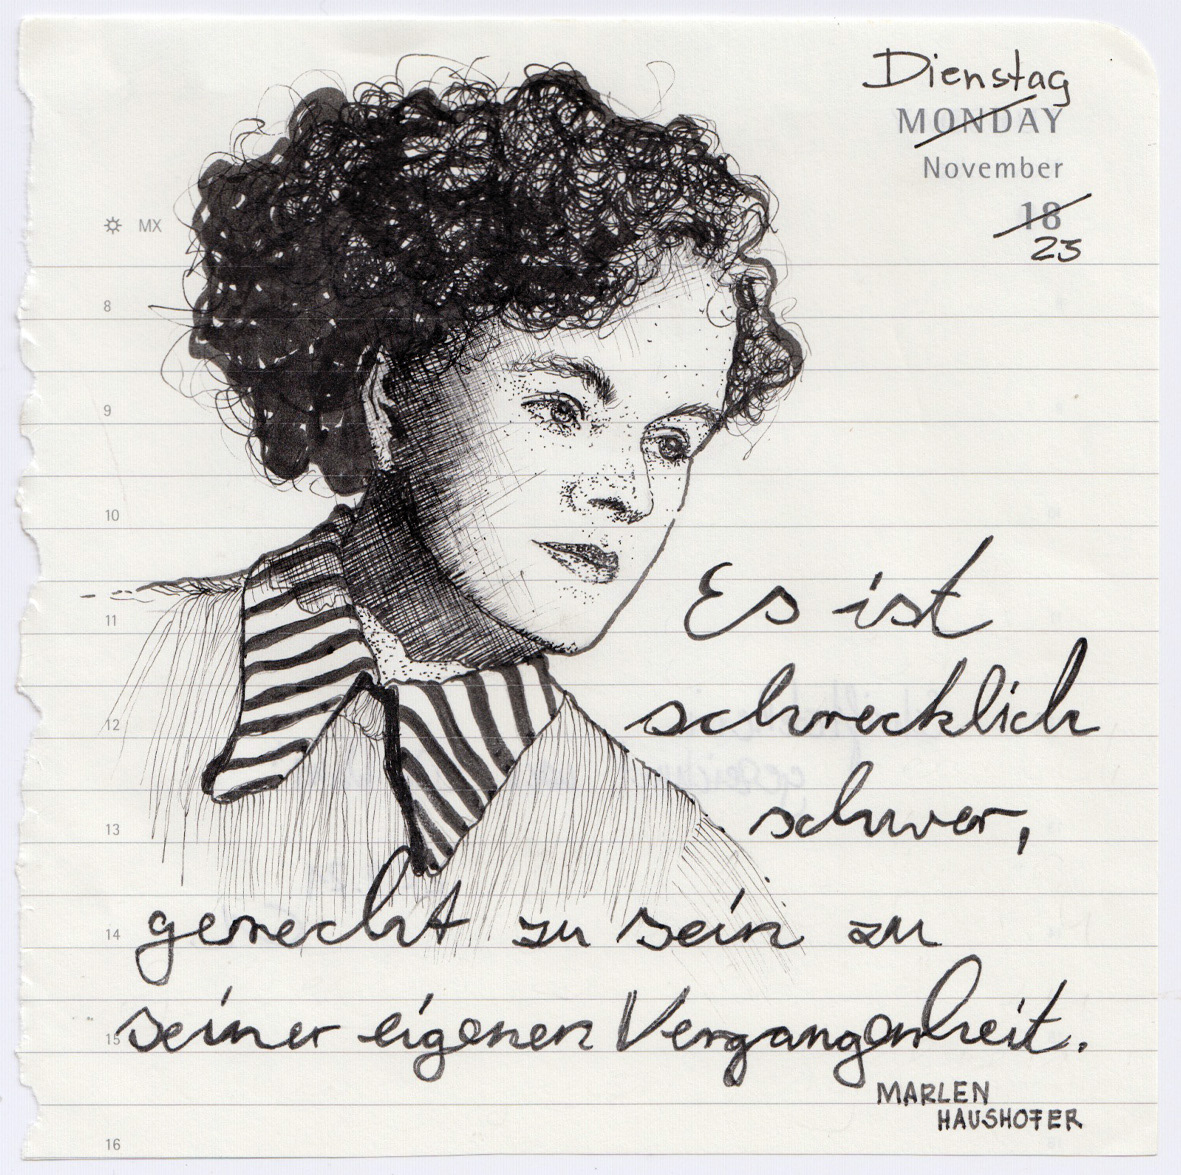 Dienstag
MONDAY
November
18
23
MX
8
9
10
11
12
13
14
15
16
Es ist
schrecklich
schwer,
gerecht zu sein zu
seiner eigenen Vergangenheit.
MARLEN
HAUSHOFER